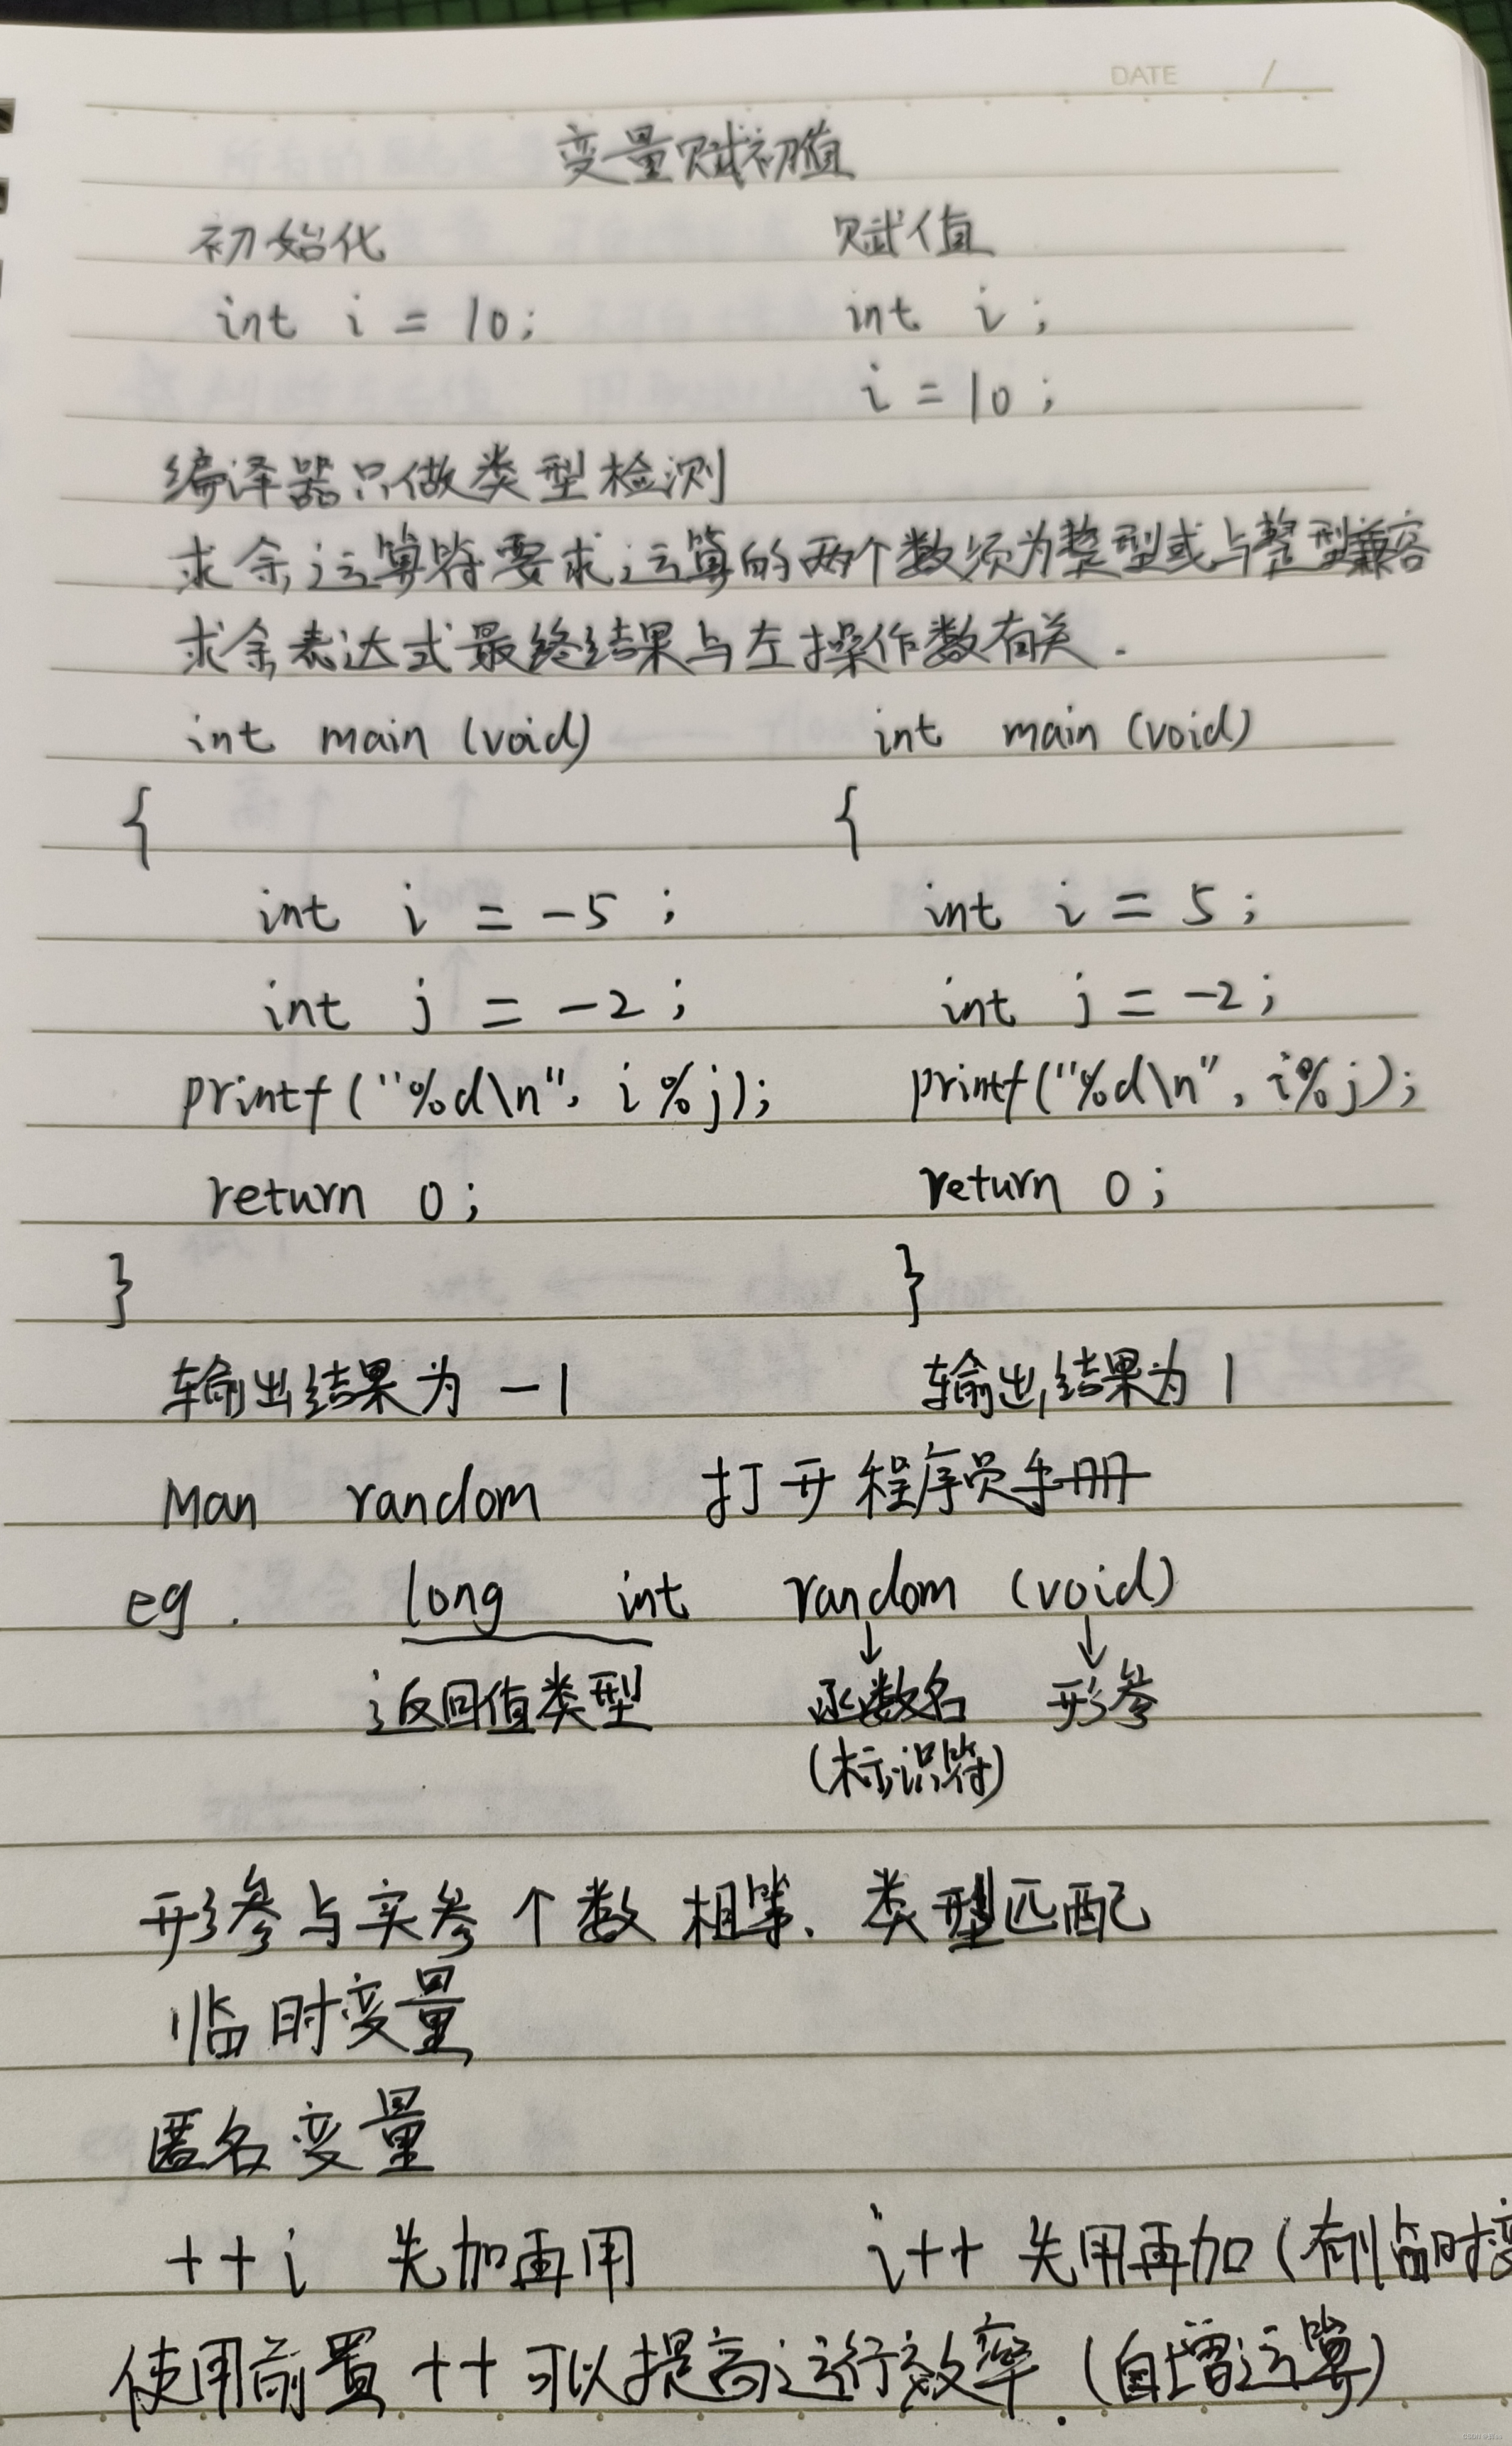 DATE /
变量赋初值
初始化 赋值
int i = 10; int i;
i = 10;
编译器只做类型检测
求余运算符要求运算的两个数须为整型或与整型兼容
求余表达式最终结果与左操作数有关.
int main (void) int main (void)
{ {
int i = -5 ; int i = 5 ;
int j = -2 ; int j = -2 ;
printf ("%d\n", i % j); printf ("%d\n", i%j);
return 0 ; return 0 ;
} }
输出结果为 -1 输出结果为 1
Man random 打开程序员手册
eg . long int random (void)
返回值类型 函数名 形参
(标识符)
形参与实参个数相等、类型匹配
临时变量
匿名变量
++i 先加再用 i++ 先用再加 (有临时变
使用前置 ++ 可以提高运行效率. (自增运算)